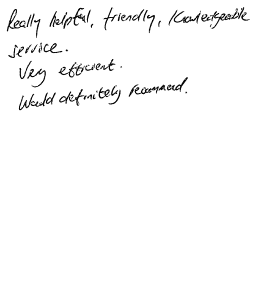 Really helpful, friendly, knowledgeable
service.
Very efficient.
Would definitely recommend.